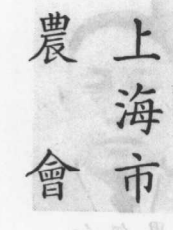 上海市
農會